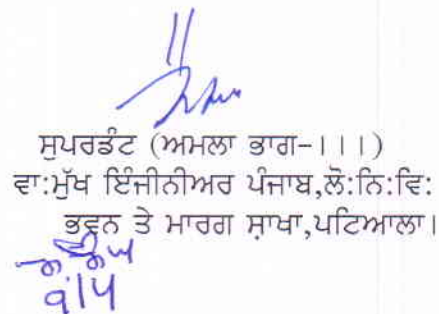 ਸੁਪਰਡੰਟ (ਅਮਲਾ ਭਾਗ-।।।)
ਵਾ:ਮੁੱਖ ਇੰਜੀਨੀਅਰ ਪੰਜਾਬ,ਲੋ:ਨਿ:ਵਿ:
ਭਵਨ ਤੇ ਮਾਰਗ ਸ਼ਾਖਾ,ਪਟਿਆਲਾ।
੧।੫